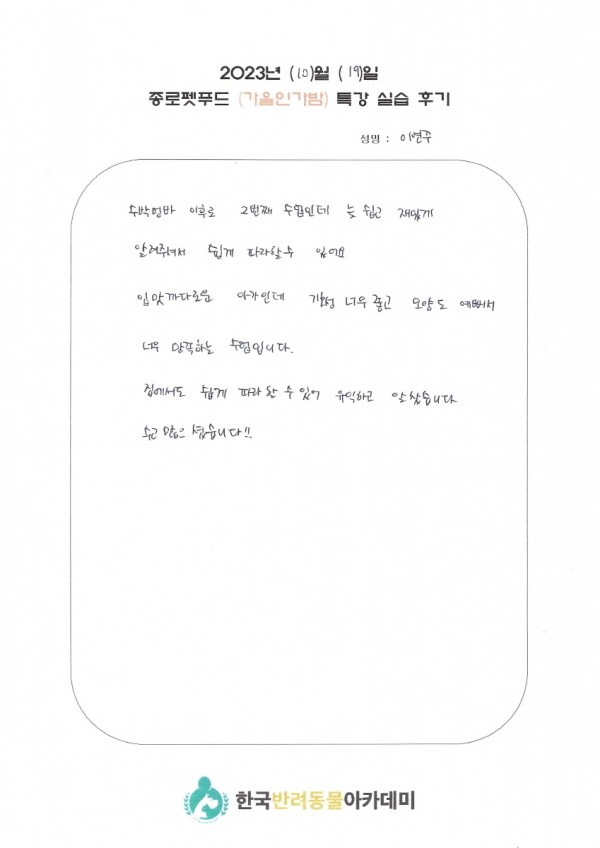 2023년 (10)월 (19)일
종로펫푸드 (가을인가밤) 특강 실습 후기
성명 : 이연주
이후로 2번째 수업인데 늘 쉽고 재밌게
알려주셔서 쉽게 따라할수 있어요
입맛까다로운 아가인데 너무 좋고 모양도 예뻐서
너무 만족하는 수업입니다.
집에서도 쉽게 따라할 수 있어 유익하고 알찼습니다
수고 많으셨습니다!!
한국반려동물아카데미